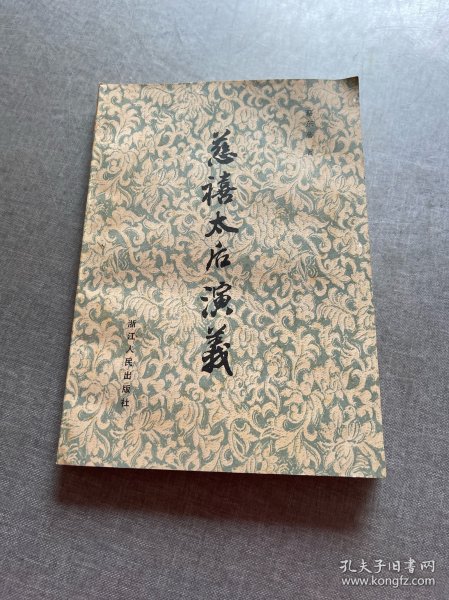 慈禧太后演義
浙江人民出版社
孔夫子旧书网
www.kongfz.com